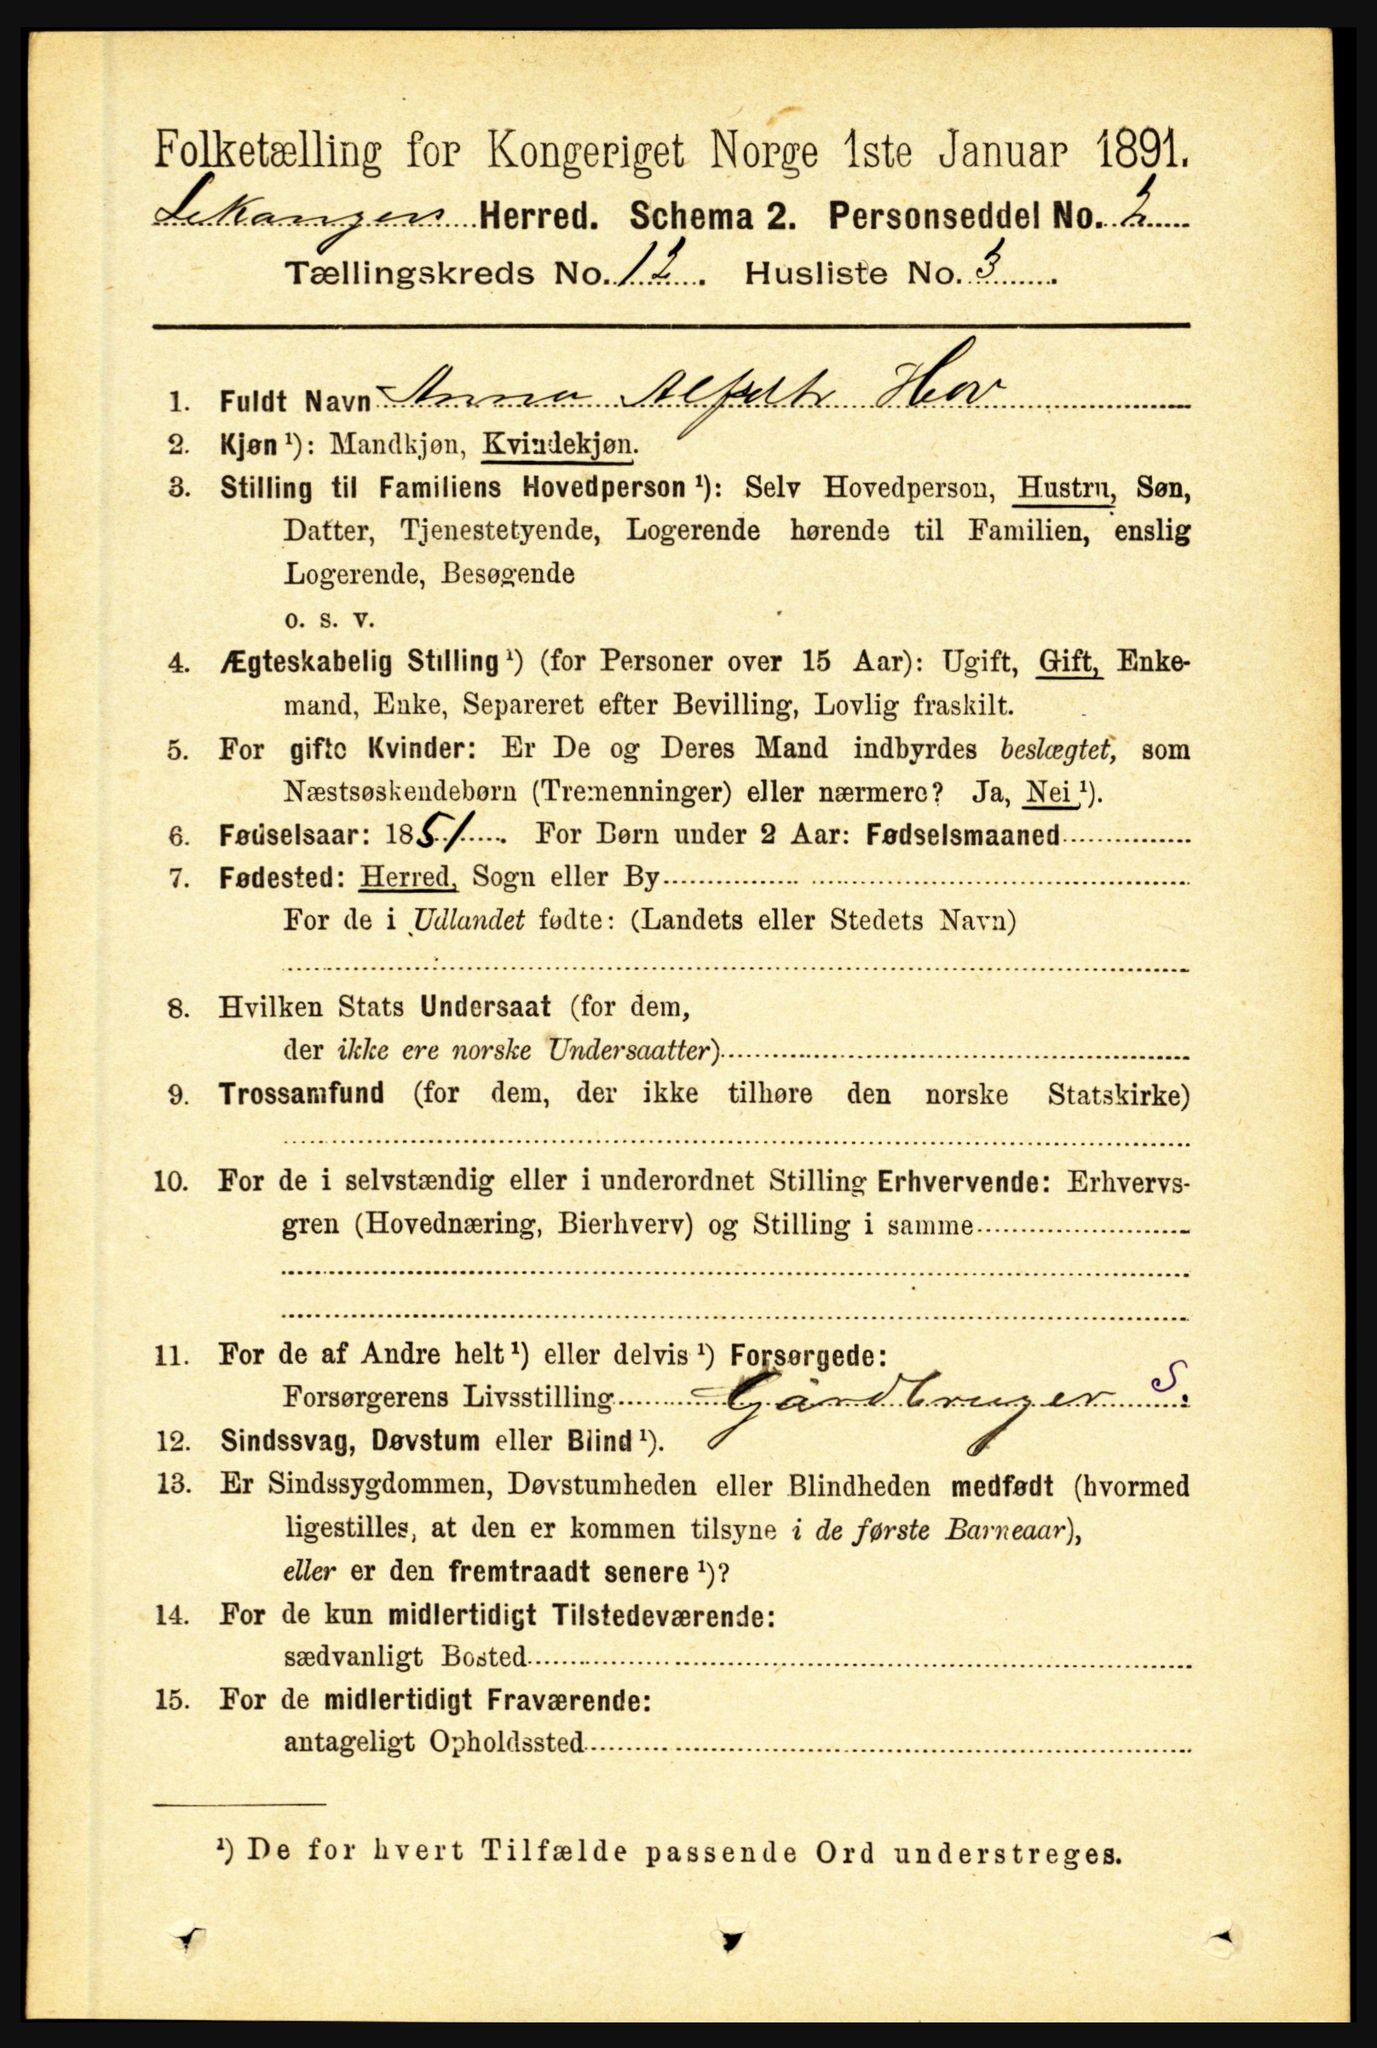 Folketælling for Kongeriget Norge 1ste Januar 1891.
Lekanger Herred. Schema 2. Personseddel No. 2
Tællingskreds No. 12. Husliste No. 3.
1. Fuldt Navn Anna Hov
2. Kjøn ¹): Mandkjøn, Kvindekjøn.
3. Stilling til Familiens Hovedperson ¹): Selv Hovedperson, Hustru, Søn,
Datter, Tjenestetyende, Logerende hørende til Familien, enslig
Logerende, Besøgende
o. s. v.
4. Ægteskabelig Stilling ¹) (for Personer over 15 Aar): Ugift, Gift, Enke-
mand, Enke, Separeret efter Bevilling, Lovlig fraskilt.
5. For gifte Kvinder: Er De og Deres Mand indbyrdes beslægtet, som
Næstsøskendebørn (Tremenninger) eller nærmere? Ja, Nei ¹).
6. Fødselsaar: 1851. For Børn under 2 Aar: Fødselsmaaned
7. Fødested: Herred, Sogn eller By
For de i Udlandet fødte: (Landets eller Stedets Navn)
8. Hvilken Stats Undersaat (for dem,
der ikke ere norske Undersaatter)
9. Trossamfund (for dem, der ikke tilhøre den norske Statskirke)
10. For de i selvstændig eller i underordnet Stilling Erhvervende: Erhvervs-
gren (Hovednæring, Bierhverv) og Stilling i samme
11. For de af Andre helt ¹) eller delvis ¹) Forsørgede:
Forsørgerens Livsstilling Gårdbruger S.
12. Sindssvag, Døvstum eller Blind ¹).
13. Er Sindssygdommen, Døvstumheden eller Blindheden medfødt (hvormed
ligestilles, at den er kommen tilsyne i de første Barneaar),
eller er den fremtraadt senere ¹)?
14. For de kun midlertidigt Tilstedeværende:
sædvanligt Bosted
15. For de midlertidigt Fraværende:
antageligt Opholdssted
¹) De for hvert Tilfælde passende Ord understreges.